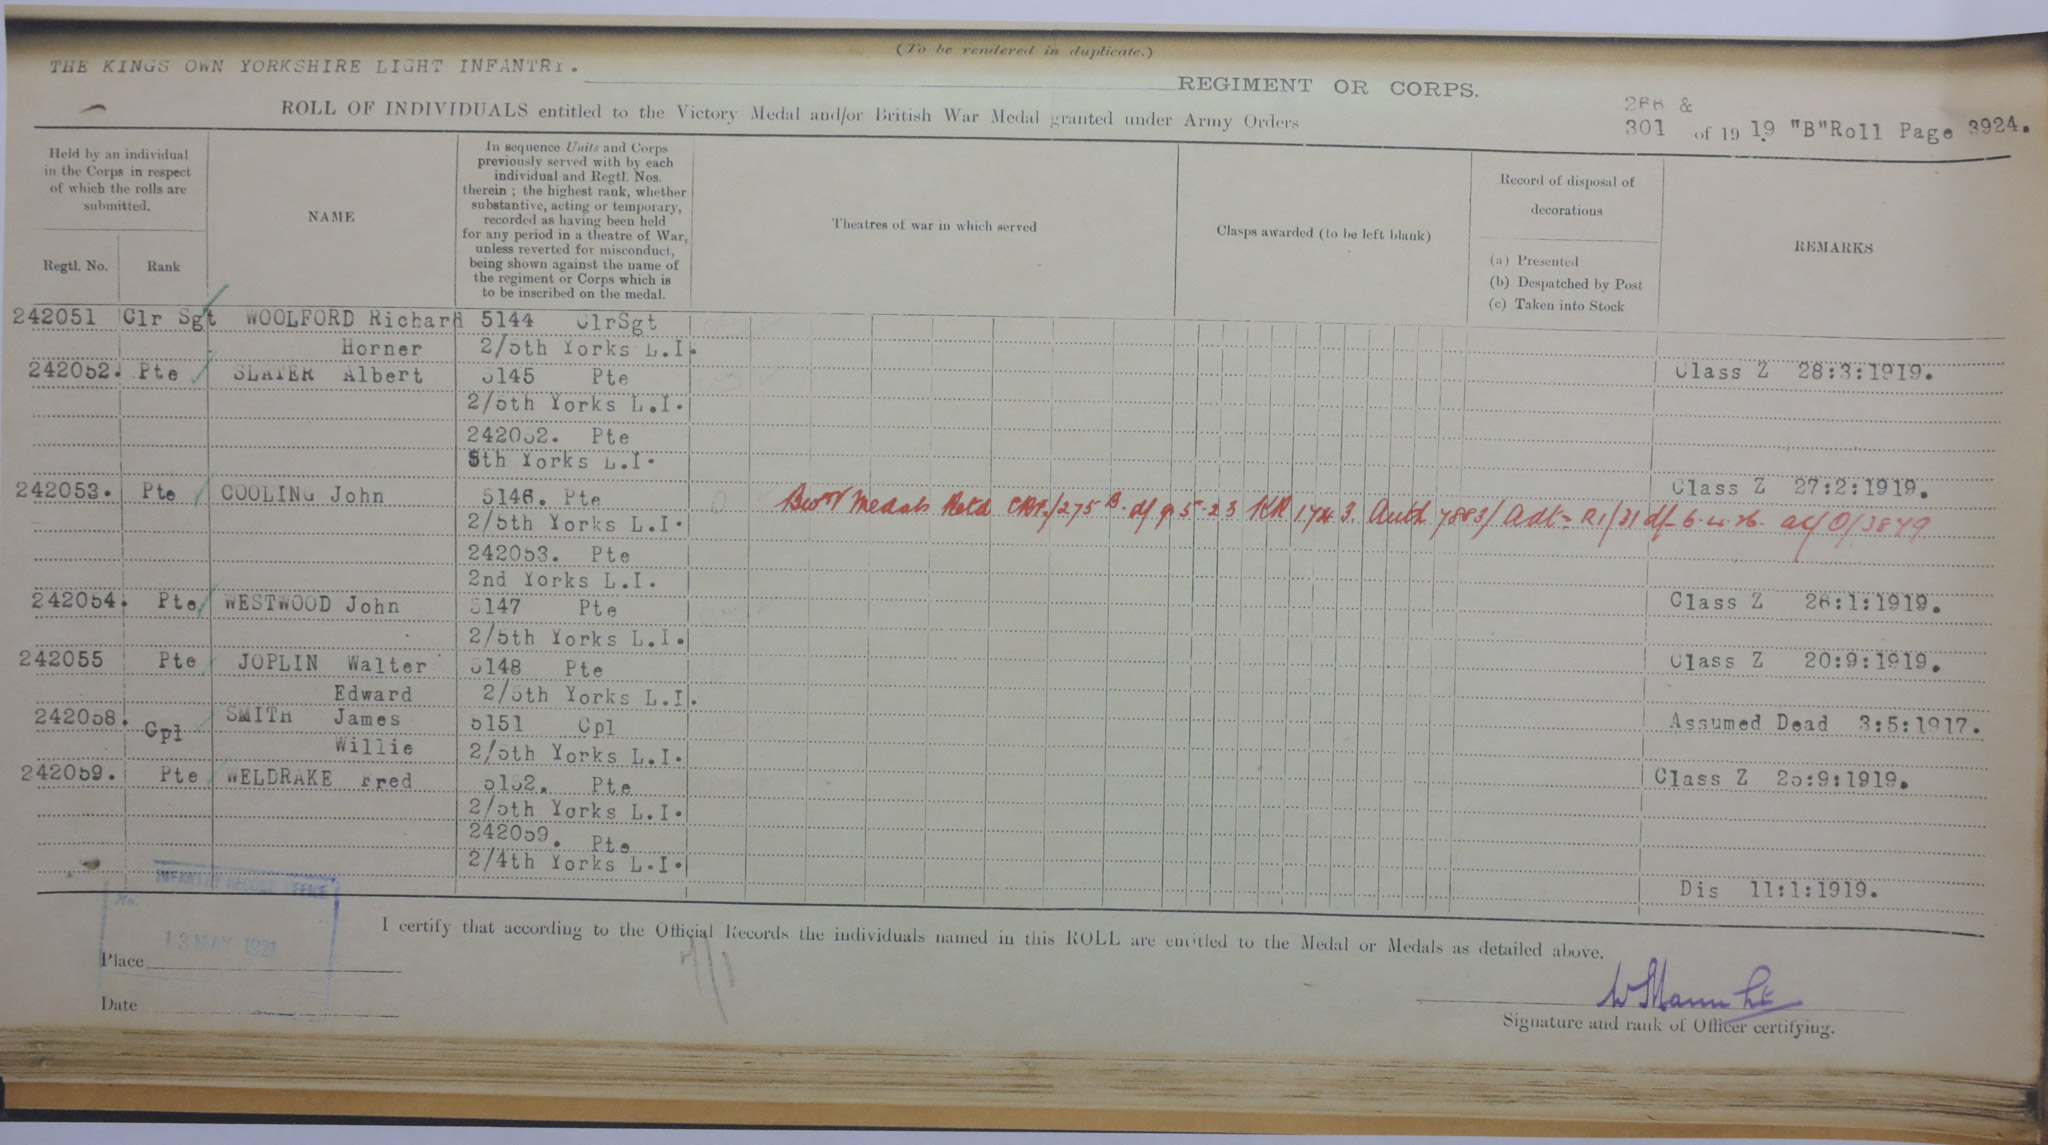 (To be rendered in duplicate.)
THE KINGS OWN YORKSHIRE LIGHT INFANTRY.
REGIMENT OR CORPS.
ROLL OF INDIVIDUALS entitled to the Victory Medal and/or British War Medal granted under Army Orders
266 &
301 of 19 19 "B"Roll Page 3924.
Held by an individual
in the Corps in respect
of which the rolls are
submitted.
Regtl. No. Rank
NAME
In sequence Units and Corps
previously served with by each
individual and Regtl. Nos.
therein ; the highest rank, whether
substantive, acting or temporary,
recorded as having been held
for any period in a theatre of War,
unless reverted for misconduct,
being shown against the name of
the regiment or Corps which is
to be inscribed on the medal.
Theatres of war in which served
Clasps awarded (to be left blank)
Record of disposal of
decorations
(a) Presented
(b) Despatched by Post
(c) Taken into Stock
REMARKS
242051 Clr Sgt WOOLFORD Richard 5144 ClrSgt
Horner 2/5th Yorks L.I.
Class Z 28:3:1919.
242052. Pte SLATER Albert 5145 Pte
2/5th Yorks L.I.
242052. Pte
5th Yorks L.I.
Class Z 27:2:1919.
242053. Pte COOLING John 5146. Pte
Medals Retd 275 B. KR 1743. Auth 7883/
2/5th Yorks L.I.
242053. Pte
2nd Yorks L.I.
Class Z 26:1:1919.
242054. Pte WESTWOOD John 5147 Pte
2/5th Yorks L.I.
Class Z 20:9:1919.
242055 Pte JOPLIN Walter 5148 Pte
Edward 2/5th Yorks L.I.
Assumed Dead 3:5:1917.
242058. Cpl SMITH James 5151 Cpl
Willie 2/5th Yorks L.I.
Class Z 25:9:1919.
242059. Pte WELDRAKE Fred 5152. Pte
2/5th Yorks L.I.
242059. Pte
2/4th Yorks L.I.
Dis 11:1:1919.
INFANTRY RECORD OFFICE
No.
13 MAY 1921
I certify that according to the Official Records the individuals named in this ROLL are entitled to the Medal or Medals as detailed above.
Place
Date
W Mann Lt
Signature and rank of Officer certifying.